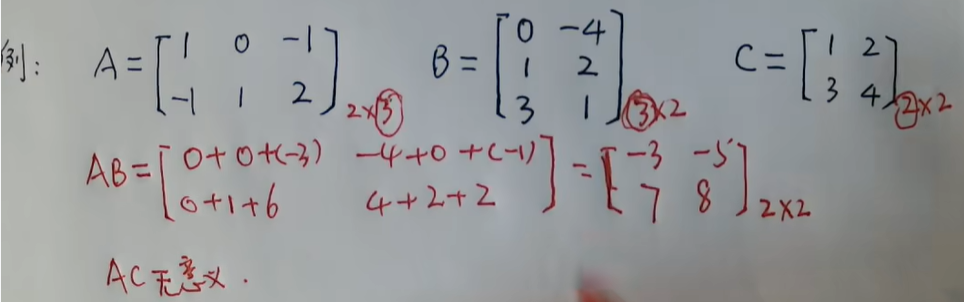 例: A = [1 0 -1; -1 1 2] 2×3 B = [0 -4; 1 2; 3 1] 3×2 C = [1 2; 3 4] 2×2
AB = [0+0+(-3) -4+0+(-1); 0+1+6 4+2+2] = [-3 -5; 7 8] 2×2
AC无意义.